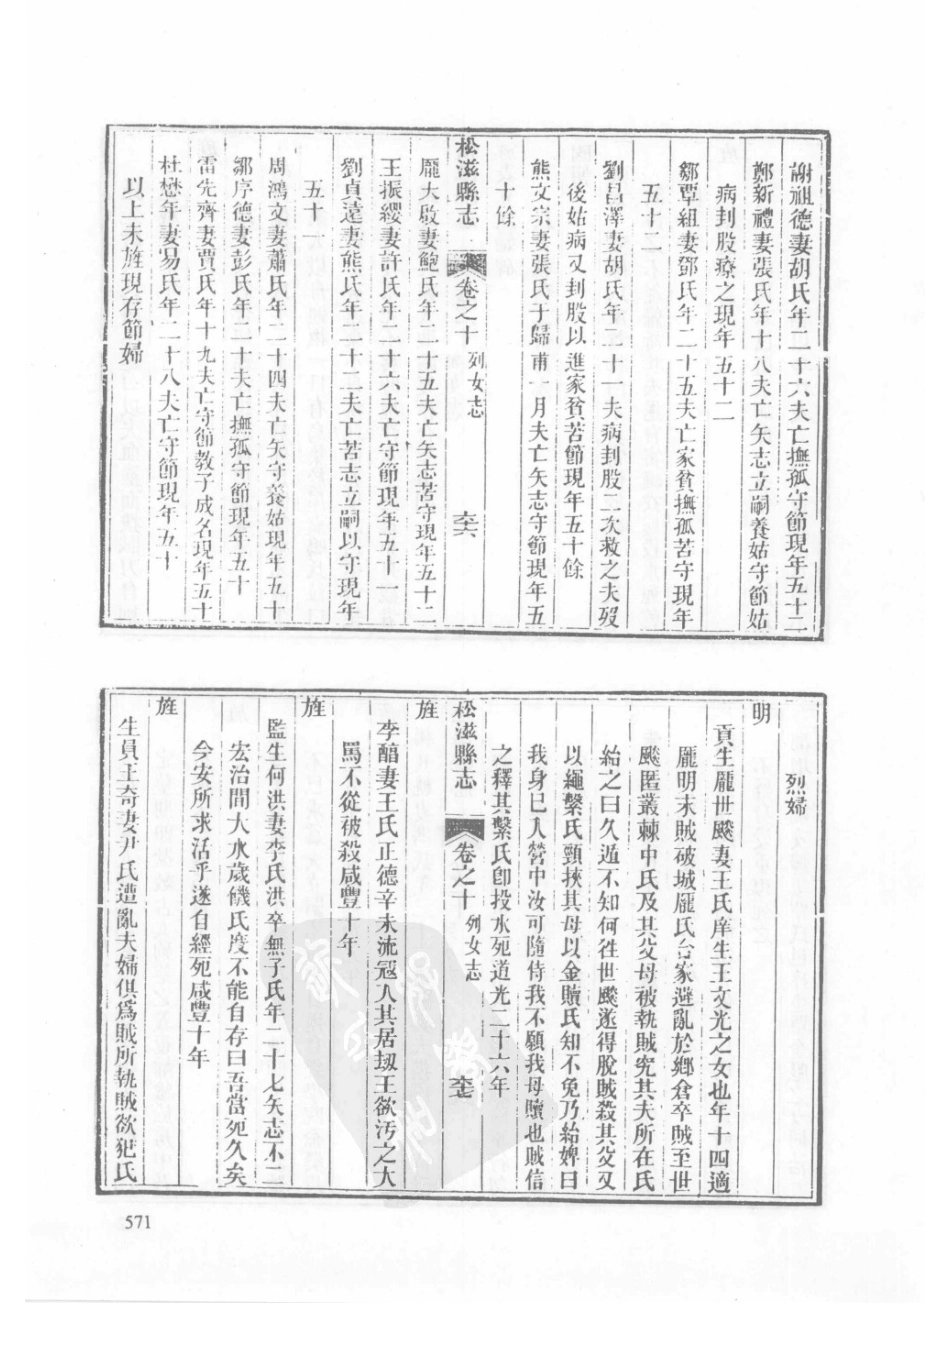 謝祖德妻胡氏年二十六夫亡撫孤守節現年五十二
鄭新禮妻張氏年十八夫亡矢志立嗣養姑守節姑
病刲股療之現年五十二
鄒覃組妻鄧氏年二十五夫亡家貧撫孤苦守現年
五十二
劉昌澤妻胡氏年二十一夫病刲股二次救之夫歿
後姑病又刲股以進家貧苦節現年五十餘
熊文宗妻張氏于歸甫 月夫亡矢志守節現年五
十餘
松滋縣志 卷之十 列女志
龎大啟妻鮑氏年二十五夫亡矢志苦守現年五十二
王振纓妻許氏年二十六夫亡守節現年五十一
劉貞遠妻熊氏年二十二夫亡苦志立嗣以守現年
五十一
周鴻文妻蕭氏年二十四夫亡矢守養姑現年五十
鄒序德妻彭氏年二十夫亡撫孤守節現年五十
雷先齊妻賈氏年十九夫亡守節教子成名現年五十
杜懋年妻易氏年二十八夫亡守節現年五十
以上未旌現存節婦
烈婦
明
貢生龎世飈妻王氏庠生王文光之女也年十四適
龎明末賊破城龎氏合家避亂於鄉倉卒賊至世
飈匿叢棘中氏及其父母被執賊究其夫所在氏
紿之曰久遁不知何徃世飈遂得脫賊殺其父又
以繩繫氏頸挾其母以金贖氏知不免乃紿婢曰
我身已入營中汝可隨侍我不願我母贖也賊信
之釋其繫氏卽投水死道光二十六年
旌
松滋縣志 卷之十 列女志
李醖妻王氏正德辛未流冦入其居刼王欲汚之大
罵不從被殺咸豐十年
旌
監生何洪妻李氏洪卒無子氏年二十七矢志不二
宏治間大水歲饑氏度不能自存曰吾當死久矣
今安所求活乎遂自經死咸豐十年
旌
生員王奇妻尹氏遭亂夫婦俱爲賊所執賊欲犯氏
571